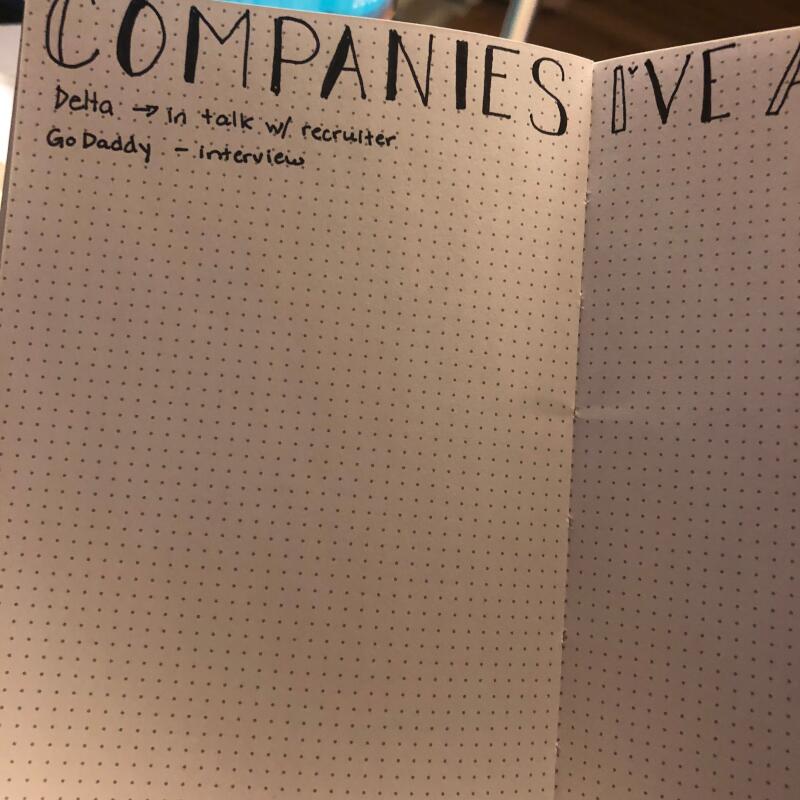 COMPANIES I'VE A
Delta → in talk w/ recruiter
Go Daddy - interview